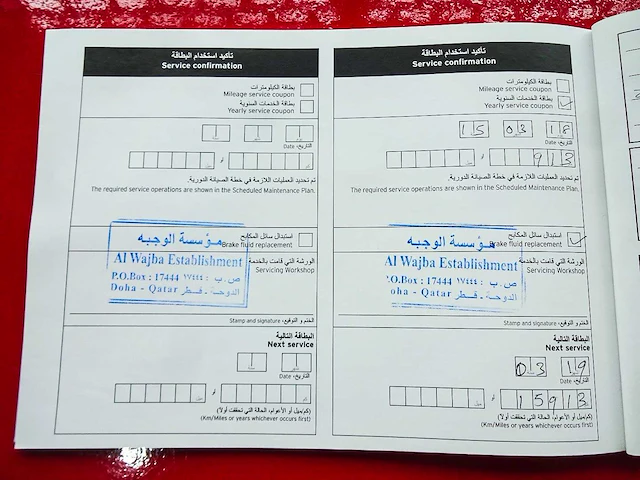 تأكيد استخدام البطاقة
Service confirmation
بطاقة الكيلومترات
Mileage service coupon
بطاقة الخدمات السنوية
Yearly service coupon
التاريخ، Date
أو
تم تحديد العمليات اللازمة في خطة الصيانة الدورية.
The required service operations are shown in the Scheduled Maintenance Plan.
استبدال سائل المكابح
Brake fluid replacement
الورشة التي قامت بالخدمة
Servicing Workshop
مؤسسة الوجبه
Al Wajba Establishment
P.O.Box : 17444 ١٧٤٤٤ : ص.ب
Doha - Qatar الدوحة - قطر
Stamp and signature الختم و التوقيع،
البطاقة التالية
Next service
التاريخ، Date
أو
(كم/ميل أو الأعوام، الحالة التي تحققت أولا)
(Km/Miles or years whichever occurs first)
تأكيد استخدام البطاقة
Service confirmation
بطاقة الكيلومترات
Mileage service coupon
بطاقة الخدمات السنوية
Yearly service coupon
15 03 18
التاريخ، Date
أو 913
تم تحديد العمليات اللازمة في خطة الصيانة الدورية.
The required service operations are shown in the Scheduled Maintenance Plan.
استبدال سائل المكابح
Brake fluid replacement
الورشة التي قامت بالخدمة
Servicing Workshop
مؤسسة الوجبه
Al Wajba Establishment
P.O.Box : 17444 ١٧٤٤٤ : ص.ب
oha - Qatar الدوحة - قطر
Stamp and signature الختم و التوقيع،
البطاقة التالية
Next service
03 19
التاريخ، Date
أو 15913
(كم/ميل أو الأعوام، الحالة التي تحققت أولا)
(Km/Miles or years whichever occurs first)